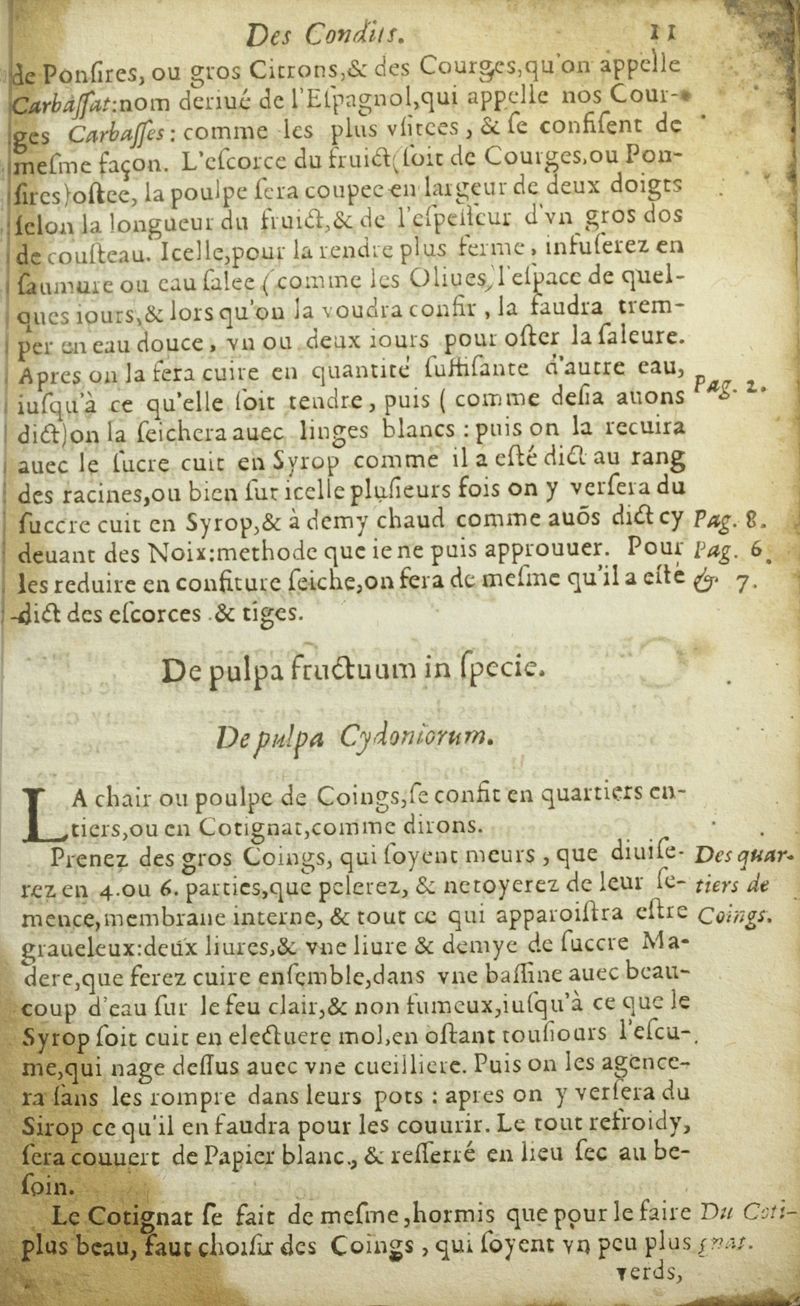 Des Condits. 11
de Ponſires, ou gros Citrons,& des Courges,qu'on appelle
Carbaſſat:nom deriué de l'Eſpagnol,qui appelle nos Cour-
ges Carbaſſes: comme les plus vſitees, & ſe confiſent de
meſme façon. L'eſcorce du fruict(ſoit de Courges,ou Pon-
ſires)oſtee, la poulpe ſera coupee en largeur de deux doigts
ſelon la longueur du fruict,& de l'eſpeſſeur d'vn gros dos
de couſteau. Icelle,pour la rendre plus ferme, infuſerez en
ſaumure ou eau ſalee (comme les Oliues)l'eſpace de quel-
ques iours,& lors qu'on la voudra confir, la faudra trem-
per en eau douce, vn ou deux iours pour oſter la ſaleure.
Apres on la fera cuire en quantité ſuffiſante d'autre eau,
iuſqu'à ce qu'elle ſoit tendre, puis ( comme deſia auons Pag. 2.
dict)on la ſeichera auec linges blancs : puis on la recuira
auec le ſucre cuit en Syrop comme il a eſté dict au rang
des racines,ou bien ſur icelle pluſieurs fois on y verſera du
ſuccre cuit en Syrop,& à demy chaud comme auõs dict cy Pag. 8.
deuant des Noix:methode que ie ne puis approuuer. Pour Pag. 6.
les reduire en confiture ſeiche,on fera de meſme qu'il a eſté & 7.
dict des eſcorces & tiges.
De pulpa fructuum in ſpecie.
De pulpa Cydoniorum.
LA chair ou poulpe de Coings,ſe confit en quartiers en-
tiers,ou en Cotignat,comme dirons.
Prenez des gros Coings, qui ſoyent meurs, que diuiſe- Des quar-
rez en 4.ou 6. parties,que pelerez, & netoyerez de leur ſe- tiers de
mence,membrane interne, & tout ce qui apparoiſtra eſtre Coings.
graueleux:deux liures,& vne liure & demye de ſuccre Ma-
dere,que ferez cuire enſemble,dans vne baſſine auec beau-
coup d'eau ſur le feu clair,& non fumeux,iuſqu'à ce que le
Syrop ſoit cuit en electuere mol,en oſtant touſiours l'eſcu-
me,qui nage deſſus auec vne cueilliere. Puis on les agence-
ra ſans les rompre dans leurs pots : apres on y verſera du
Sirop ce qu'il en faudra pour les couurir. Le tout refroidy,
ſera couuert de Papier blanc, & reſſerré en lieu ſec au be-
ſoin.
Le Cotignat ſe fait de meſme,hormis que pour le faire Du Coti-
plus beau, faut choiſir des Coings, qui ſoyent vn peu plus gnat.
verds,